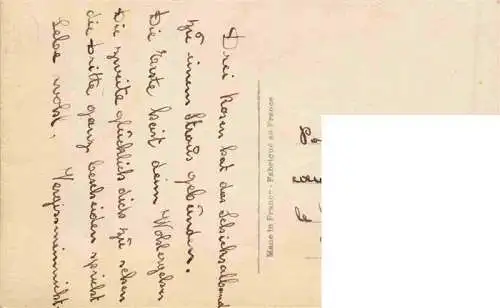 Drei Rosen hat das Schicksalband
zu einem Straus gebunden.
Die Erste heist dein Wohlergehen
Die zweite glücklich dich zu sehen
die dritte ganz bescheiden spricht
Lebe wohl, Vergissmeinnicht.
Made in France - Fabriqué en France